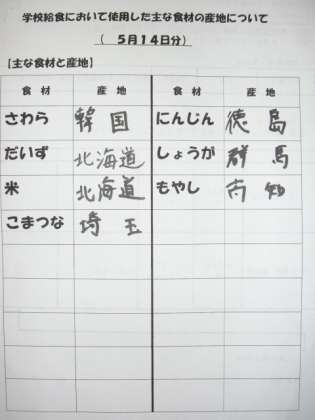 学校給食において使用した主な食材の産地について
( 5月14日分)
【主な食材と産地】
食材 産地 食材 産地
さわら 韓国 にんじん 徳島
だいず 北海道 しょうが 群馬
米 北海道 もやし
こまつな 埼玉